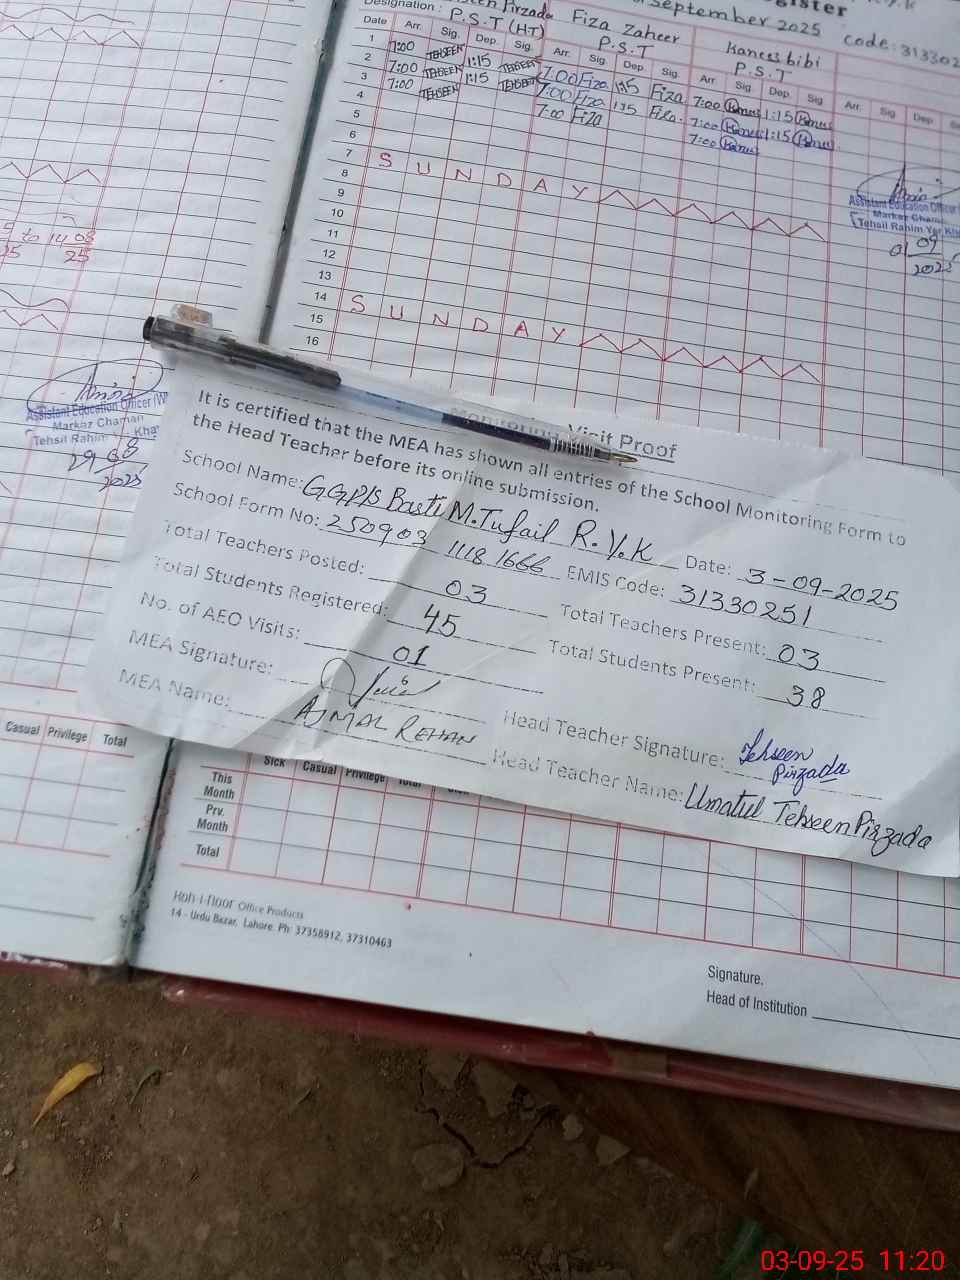 Register
September 2025 code: 313302
Designation : P.S.T (HT) Fiza Zaheer P.S.T Kanees bibi P.S.T
Date Arr. Sig. Dep. Sig. Arr. Sig. Dep. Sig. Arr. Sig. Dep. Sig Arr. Sig Dep.
1 7:00 TEHSEEN 1:15 TEHSEEN 7:00 Fiza 1:15 Fiza 7:00 1:15
2 7:00 TEHSEEN 1:15 TEHSEEN 7:00 Fiza 1:15 Fiza. 7:00 1:15
3 7:00 TEHSEEN 7:00 Fiza 7:00
4
5
6
7 S U N D A Y
8
9
10
11
12
13
14 S U N D A Y
15
16
Assistant Education Officer
Markaz Chaman
Tehsil Rahim Yar Kha
01 09
2025
to 14 08
25
Assistant Education Officer (W
Markaz Chaman
Tehsil Rahim Kha
29 08
2025
Monitoring Visit Proof
It is certified that the MEA has shown all entries of the School Monitoring Form to
the Head Teacher before its online submission.
School Name: GGP/S Basti M.Tufail R.Y.K Date: 3-09-2025
School Form No: 250903 1118 1666 EMIS Code: 31330251
Total Teachers Posted: 03 Total Teachers Present: 03
Total Students Registered: 45 Total Students Present: 38
No. of AEO Visits: 01
MEA Signature: Head Teacher Signature: Tehseen Pirzada
MEA Name: AJMAL REHAN Head Teacher Name: Umatul Tehseen Pirzada
Casual Privilege Total
Sick Casual Privilege Total
This Month
Prv. Month
Total
Office Products
14 - Urdu Bazar, Lahore. Ph: 37358912, 37310463
Signature.
Head of Institution
03-09-25 11:20